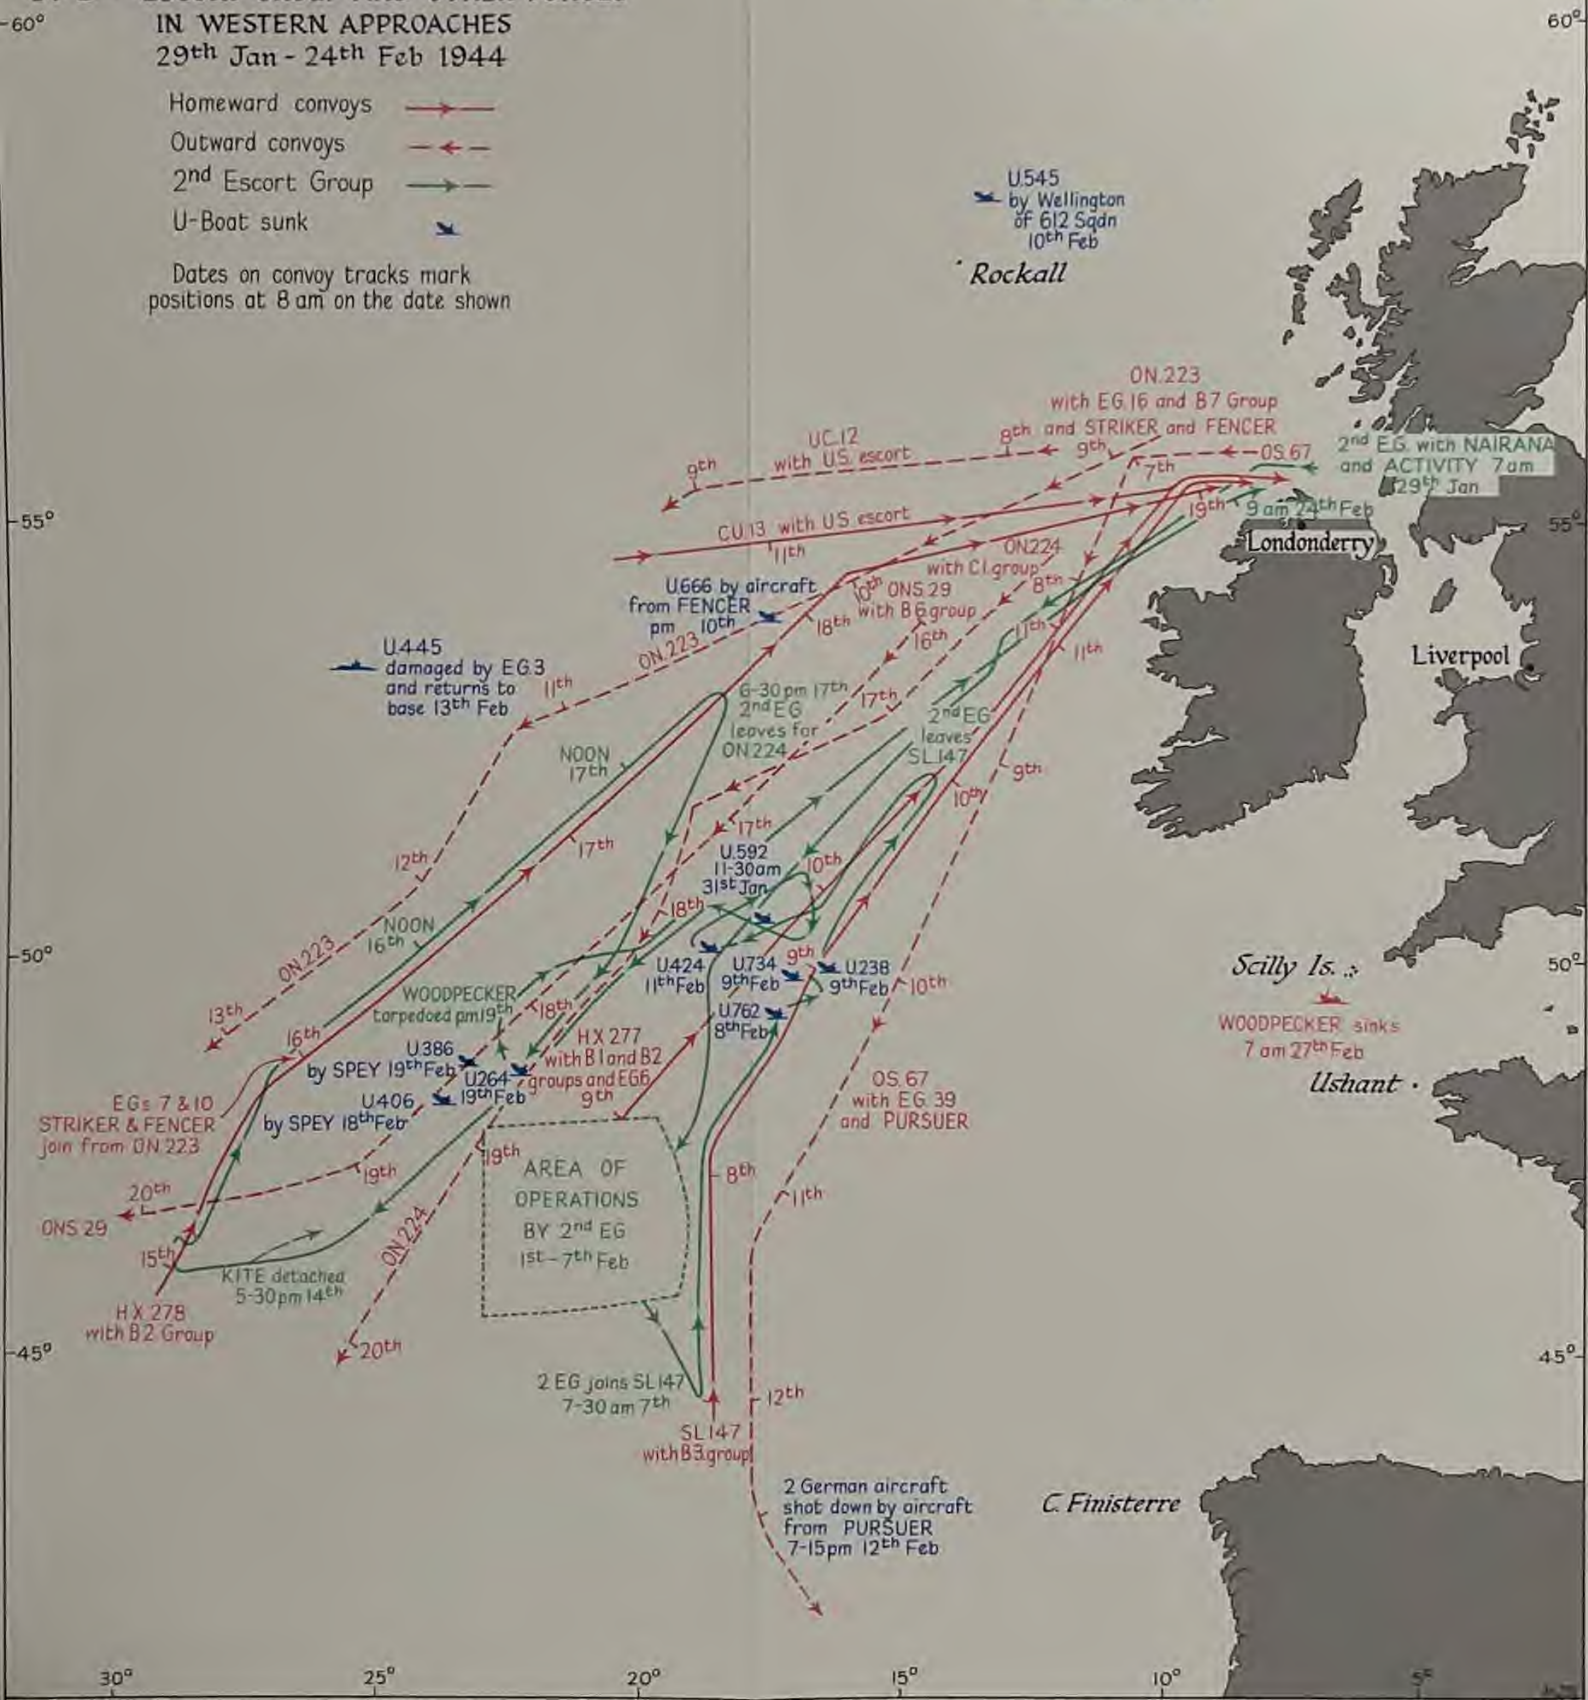 60°
60°
IN WESTERN APPROACHES
29th Jan - 24th Feb 1944
Homeward convoys
Outward convoys
2nd Escort Group
U-Boat sunk
Dates on convoy tracks mark
positions at 8 am on the date shown
U.545
by Wellington
of 612 Sqdn
10th Feb
Rockall
ON.223
with EG.16 and B7 Group
and STRIKER and FENCER
UC.12
with U.S. escort
8th
9th
9th
7th
OS.67
2nd E.G. with NAIRANA
and ACTIVITY 7am
29th Jan
55°
55°
CU.13 with US escort
11th
19th
9 am 24th Feb
Londonderry
ON.224
with C1.group
8th
10th
ONS.29
with B6 group
16th
18th
U.666 by aircraft
from FENCER
pm 10th
ON.223
U.445
damaged by EG.3
and returns to
base 13th Feb
11th
11th
11th
Liverpool
6-30pm 17th
2nd EG
leaves for
ON 224
17th
2nd EG
leaves
SL.147
NOON
17th
9th
10th
17th
17th
12th
U.592
11-30am
31st Jan
10th
18th
NOON
16th
ON.223
13th
50°
50°
U.424
11th Feb
U.734
9th Feb
9th
U.238
9th Feb
10th
Scilly Is.
WOODPECKER sinks
7 am 27th Feb
Ushant
WOODPECKER
torpedoed pm19th
18th
U.762
8th Feb
16th
U.386
by SPEY 19th Feb
U.264
19th Feb
U.406
by SPEY 18th Feb
HX 277
with B1 and B2
groups and EG6
9th
EGs 7 & 10
STRIKER & FENCER
join from ON 223
OS.67
with EG.39
and PURSUER
19th
19th
20th
ONS.29
AREA OF
OPERATIONS
BY 2nd EG
1st-7th Feb
8th
11th
ON.224
15th
KITE detached
5-30pm 14th
HX 278
with B2 Group
20th
45°
45°
2 EG joins SL147
7-30 am 7th
12th
SL147
with B3.group
2 German aircraft
shot down by aircraft
from PURSUER
7-15pm 12th Feb
C. Finisterre
30°
25°
20°
15°
10°
5°